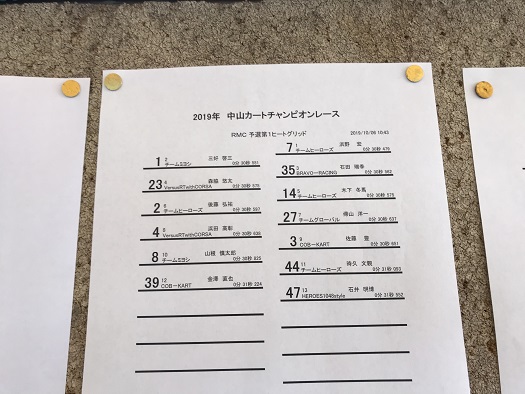 2019年 中山カートチャンピオンレース
RMC 予選第1ヒートグリッド 2019/10/06 10:43
7 1 浜野 宏
チームヒーローズ 0分 30秒 479
1 2 三好 啓三
チームミヨシ 0分 30秒 551
35 3 石田 瑞幸
BRAVO-RACING 0分 30秒 562
23 4 森脇 悠太
VersusRTwithCORSA 0分 30秒 575
14 5 木下 冬馬
チームヒーローズ 0分 30秒 575
2 6 後藤 弘祐
チームヒーローズ 0分 30秒 597
27 7 横山 洋一
チームグローバル 0分 30秒 637
4 8 浜田 高彰
VersusRTwithCORSA 0分 30秒 638
3 9 佐藤 豊
COB-KART 0分 30秒 651
8 10 山根 慎太郎
チームミヨシ 0分 30秒 825
44 11 持久 文朝
チームヒーローズ 0分 31秒 063
39 12 金澤 直也
COB-KART 0分 31秒 224
47 13 石井 明博
HEROES1048style 0分 31秒 552